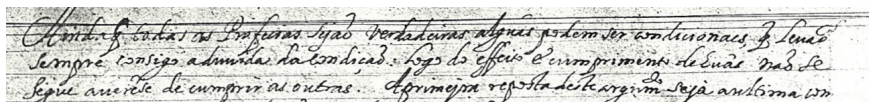 Ainda q̃ todas as Profecias sejaõ verdadeiras algũas podem ser condicionaes, q̃ levaõ
sempre consigo a duvida da condiçaõ: logo do effeito e cumprimento de huãs naõ se
segue averẽse de cumprir as outras. A primeira reposta deste argum.to seja a ultima con